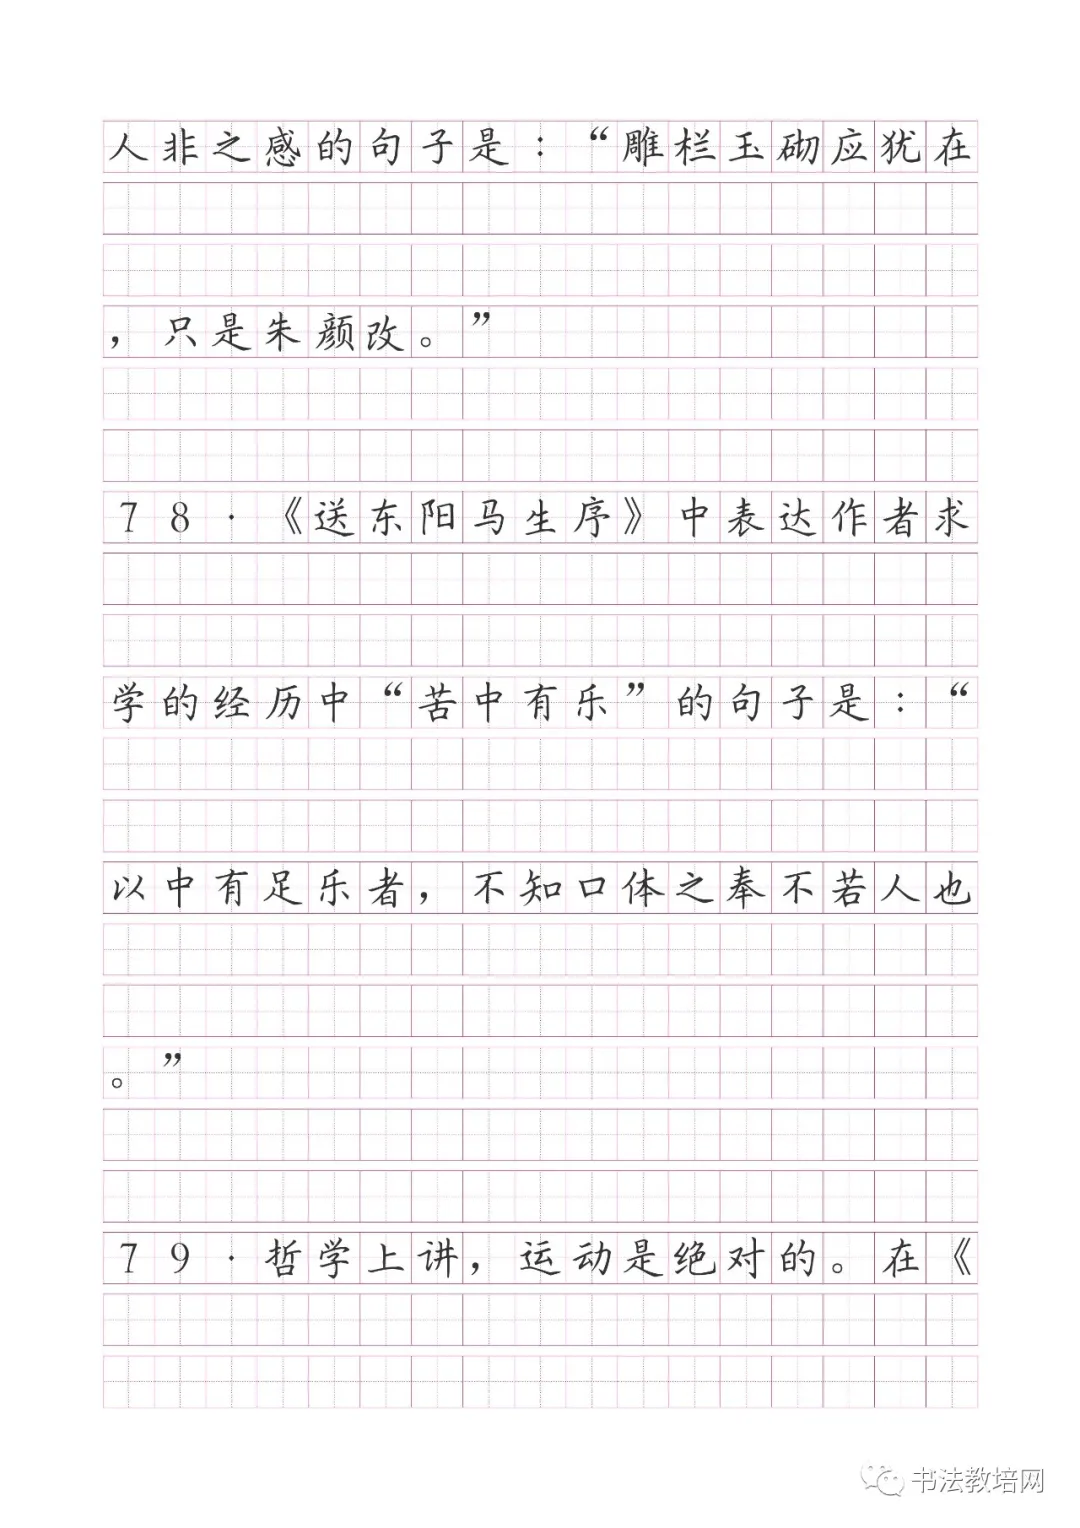 人非之感的句子是：“雕栏玉砌应犹在
，只是朱颜改。”
78.《送东阳马生序》中表达作者求
学的经历中“苦中有乐”的句子是：“
以中有足乐者，不知口体之奉不若人也
。”
79.哲学上讲，运动是绝对的。在《
书法教培网